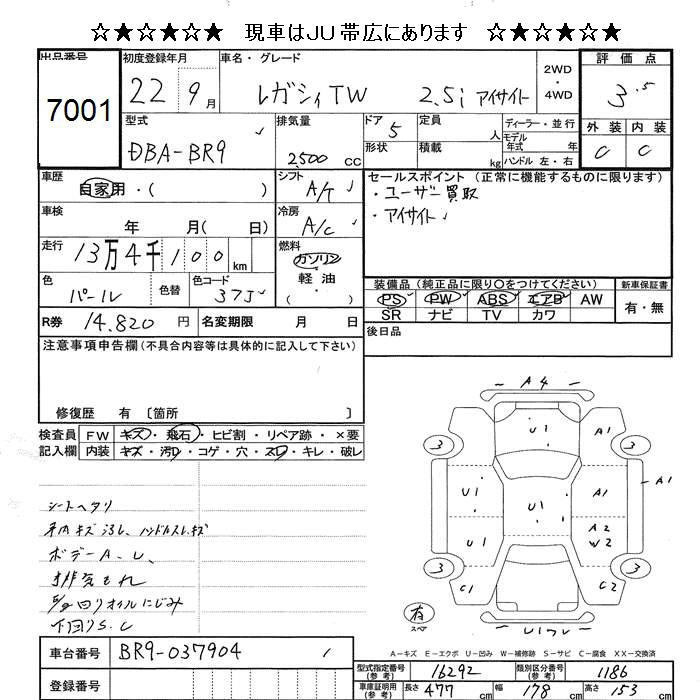 ☆★☆★☆★ 現車はJU帯広にあります ☆★☆★☆★
出品番号
7001
初度登録年月
22 9月
車名・グレード
レガシィTW 2.5i アイサイト
2WD・4WD
評価点
3.5
型式
DBA-BR9
排気量
2500 cc
ドア 5
形状
定員 人
積載 kg
ディーラー・並行
モデル年式 年
ハンドル 左・右
外装 内装
C C
車歴
自家用・( )
シフト
A/T
セールスポイント (正常に機能するものに限ります)
・ユーザー買取
・アイサイト
車検
年 月( 日)
冷房
A/C
走行
13万4千100 km
燃料
ガソリン
軽油
( )
色
パール
色替
色コード
37J
装備品(純正品に限り○をつけてください)
新車保証書
PS PW ABS エアB AW
有・無
SR ナビ TV カワ
R券 14,820 円
名変期限 月 日
後日品
注意事項申告欄(不具合内容等は具体的に記入して下さい)
修復歴 有 〔箇所 〕
検査員記入欄
FW キズ・飛石・ヒビ割・リペア跡・×要
内装 キズ・汚レ・コゲ・穴・スレ・キレ・破レ
シートヘタリ
車内キズ汚レ、ハンドルスレキズ
ボデーA.U.
排気もれ
E/g回りオイルにじみ
下回りS.C
A4
U1
A1
3
3
A1
U1
U1
A1
U1
A2
W2
3
3
C1
C2
有
スペア
A-キズ E-エクボ U-凹み W-補修跡 S-サビ C-腐食 XX-交換済
車台番号
BR9-037904
登録番号
型式指定番号(参考)
16292
類別区分番号(参考)
1186
車庫証明用(参考)
長さ 477 cm
幅 178 cm
高さ 153 cm